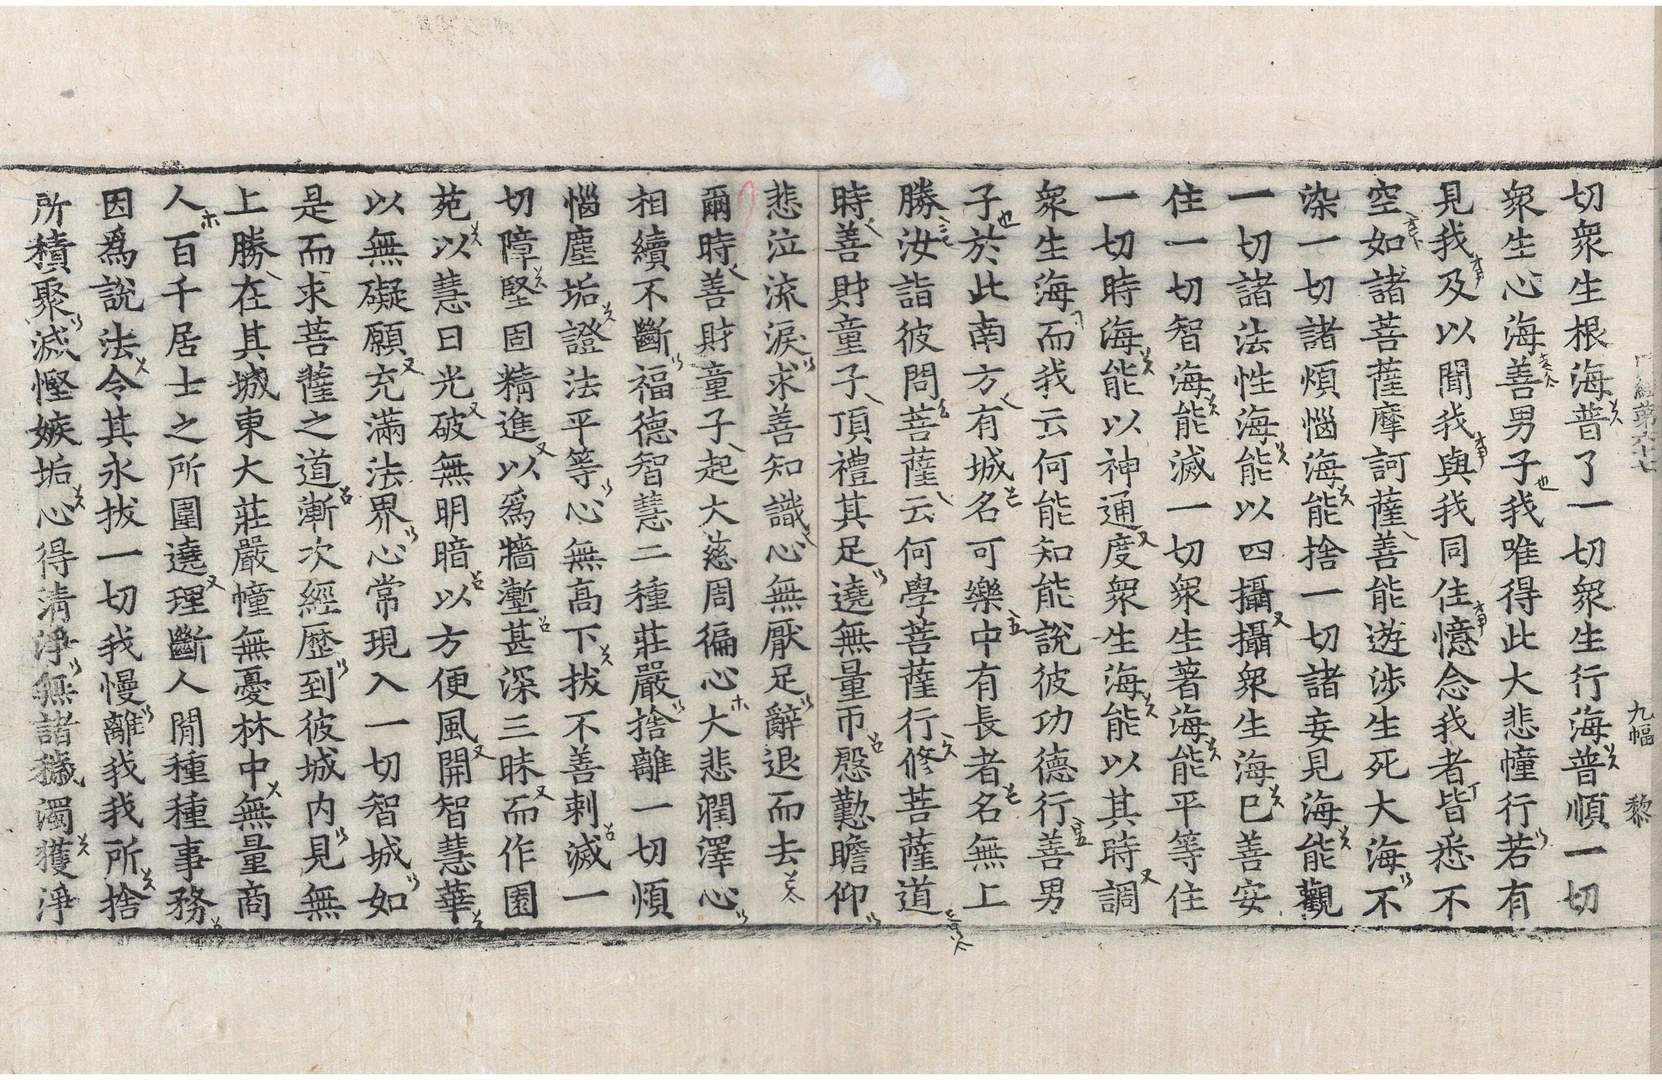 切衆生根海普了一切衆生行海普順一切
衆生心海善男子我唯得此大悲幢行若有
見我及以聞我與我同住憶念我者皆悉不
空如諸菩薩摩訶薩善能遊涉生死大海不
染一切諸煩惱海能捨一切諸妄見海能觀
一切諸法性海能以四攝攝衆生海已善安
住一切智海能滅一切衆生著海能平等住
一切時海能以神通度衆生海能以其時調
衆生海而我云何能知能說彼功德行善男
子於此南方有城名可樂中有長者名無上
勝汝詣彼問菩薩云何學菩薩行修菩薩道
時善財童子頂禮其足遶無量帀慇懃瞻仰
悲泣流淚求善知識心無厭足辭退而去
爾時善財童子起大慈周徧心大悲潤澤心
相續不斷福德智慧二種莊嚴捨離一切煩
惱塵垢證法平等心無高下拔不善刺滅一
切障堅固精進以爲牆塹甚深三昧而作園
苑以慧日光破無明暗以方便風開智慧華
以無礙願充滿法界心常現入一切智城如
是而求菩薩之道漸次經歷到彼城内見無
上勝在其城東大莊嚴幢無憂林中無量商
人百千居士之所圍遶理斷人閒種種事務
因爲說法令其永拔一切我慢離我我所捨
所積聚滅慳嫉垢心得清淨無諸穢濁獲淨
經第六十七
九幅
黎